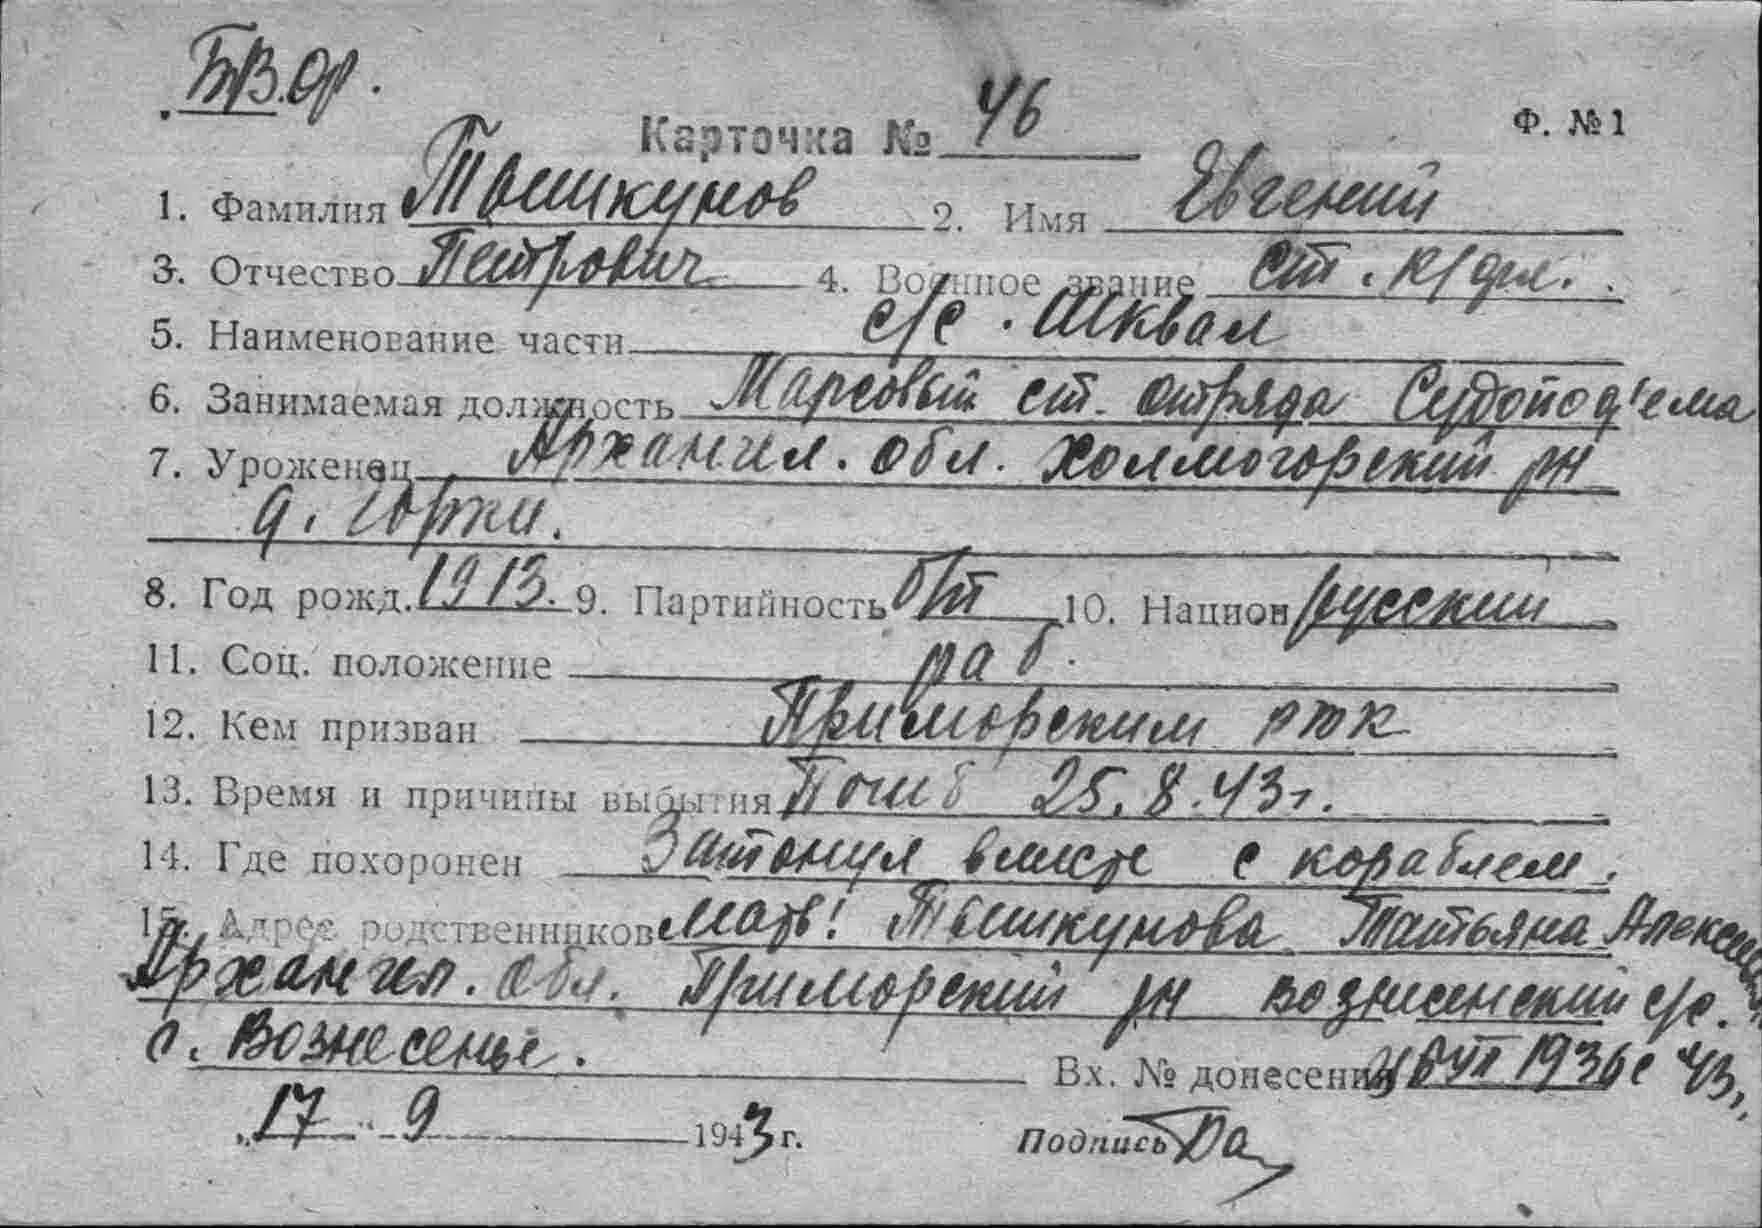 БВ.ф.
Карточка № 46
Ф. № 1
1. Фамилия Тышкунов 2. Имя Евгений
3. Отчество Петрович 4. Военное звание ст. к/фл.
5. Наименование части с/с. Шквал
6. Занимаемая должность Марсовый ст. отряда Судопод'ема
7. Уроженец Архангел. обл. Холмогорский рн
д. Горки.
8. Год рожд. 1913. 9. Партийность б/п 10. Национ русский
11. Соц. положение раб.
12. Кем призван Приморским РВК
13. Время и причины выбытия Погиб 25.8.43г.
14. Где похоронен Затонул вместе с кораблем.
15. Адрес родственников Мать: Тышкунова Татьяна
Архангел. обл. Приморский рн вознесенский с/с.
с. Вознесенье.
Вх. № донесения 1936с 43г.
„17" 9 1943 г.
Подпись